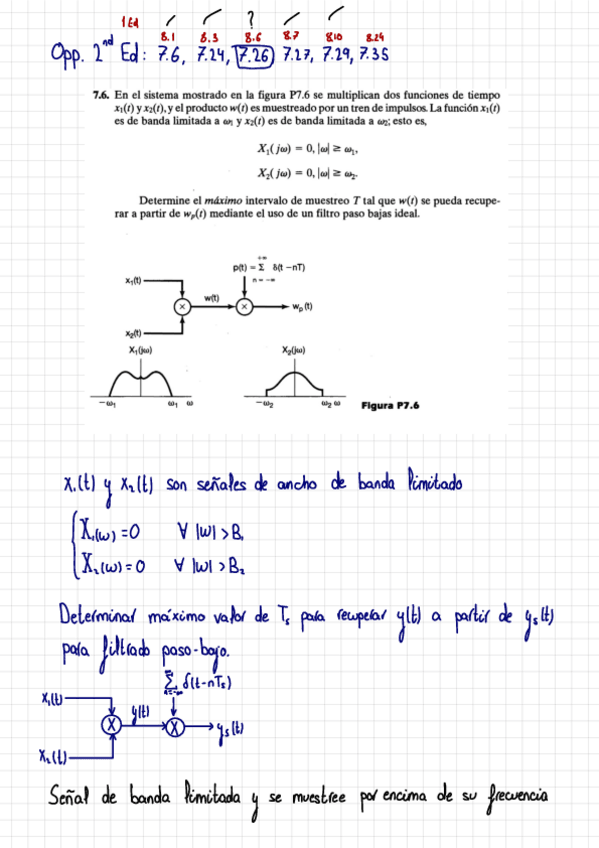 1 Ed ?
8.1 8.3 8.6 8.7 8.10 8.24
Opp. 2nd Ed: 7.6, 7.24, 7.26 7.27, 7.29, 7.35
7.6. En el sistema mostrado en la figura P7.6 se multiplican dos funciones de tiempo
x₁(t) y x₂(t), y el producto w(t) es muestreado por un tren de impulsos. La función x₁(t)
es de banda limitada a ω₁ y x₂(t) es de banda limitada a ω₂; esto es,
X₁(jω) = 0, |ω| ≥ ω₁,
X₂(jω) = 0, |ω| ≥ ω₂.
Determine el máximo intervalo de muestreo T tal que w(t) se pueda recupe-
rar a partir de wₚ(t) mediante el uso de un filtro paso bajas ideal.
+∞
p(t) = Σ δ(t −nT)
n = −∞
x₁(t)
w(t)
× × wₚ(t)
x₂(t)
X₁(jω) X₂(jω)
−ω₁ ω₁ ω −ω₂ ω₂ ω Figura P7.6
x₁(t) y x₂(t) son señales de ancho de banda limitado
X₁(ω) = 0 ∀ |ω| > B₁
X₂(ω) = 0 ∀ |ω| > B₂
Determinar máximo valor de Ts para recuperar y(t) a partir de ys(t)
para filtrado paso-bajo.
∞
Σ δ(t-nTs)
n=-∞
x₁(t)
y(t)
X X ys(t)
x₂(t)
Señal de banda limitada y se muestree por encima de su frecuencia